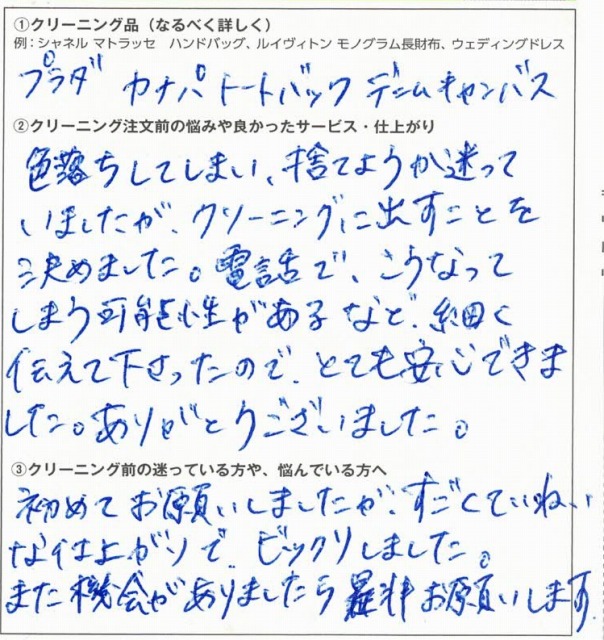 ①クリーニング品（なるべく詳しく）
例：シャネル マトラッセ　ハンドバッグ、ルイヴィトン モノグラム長財布、ウェディングドレス
プラダ カナパ トートバック デニムキャンバス
②クリーニング注文前の悩みや良かったサービス・仕上がり
色落ちしてしまい、捨てようか迷って
いましたが、クリーニングに出すことを
決めました。電話で、こうなって
しまう可能性があるなど、細く
伝えて下さったので、とても安心できま
した。ありがとうございました。
③クリーニング前の迷っている方や、悩んでいる方へ
初めてお願いしましたが、すごくていねい
な仕上がりで、ビックリしました。
また機会がありましたら お願いします